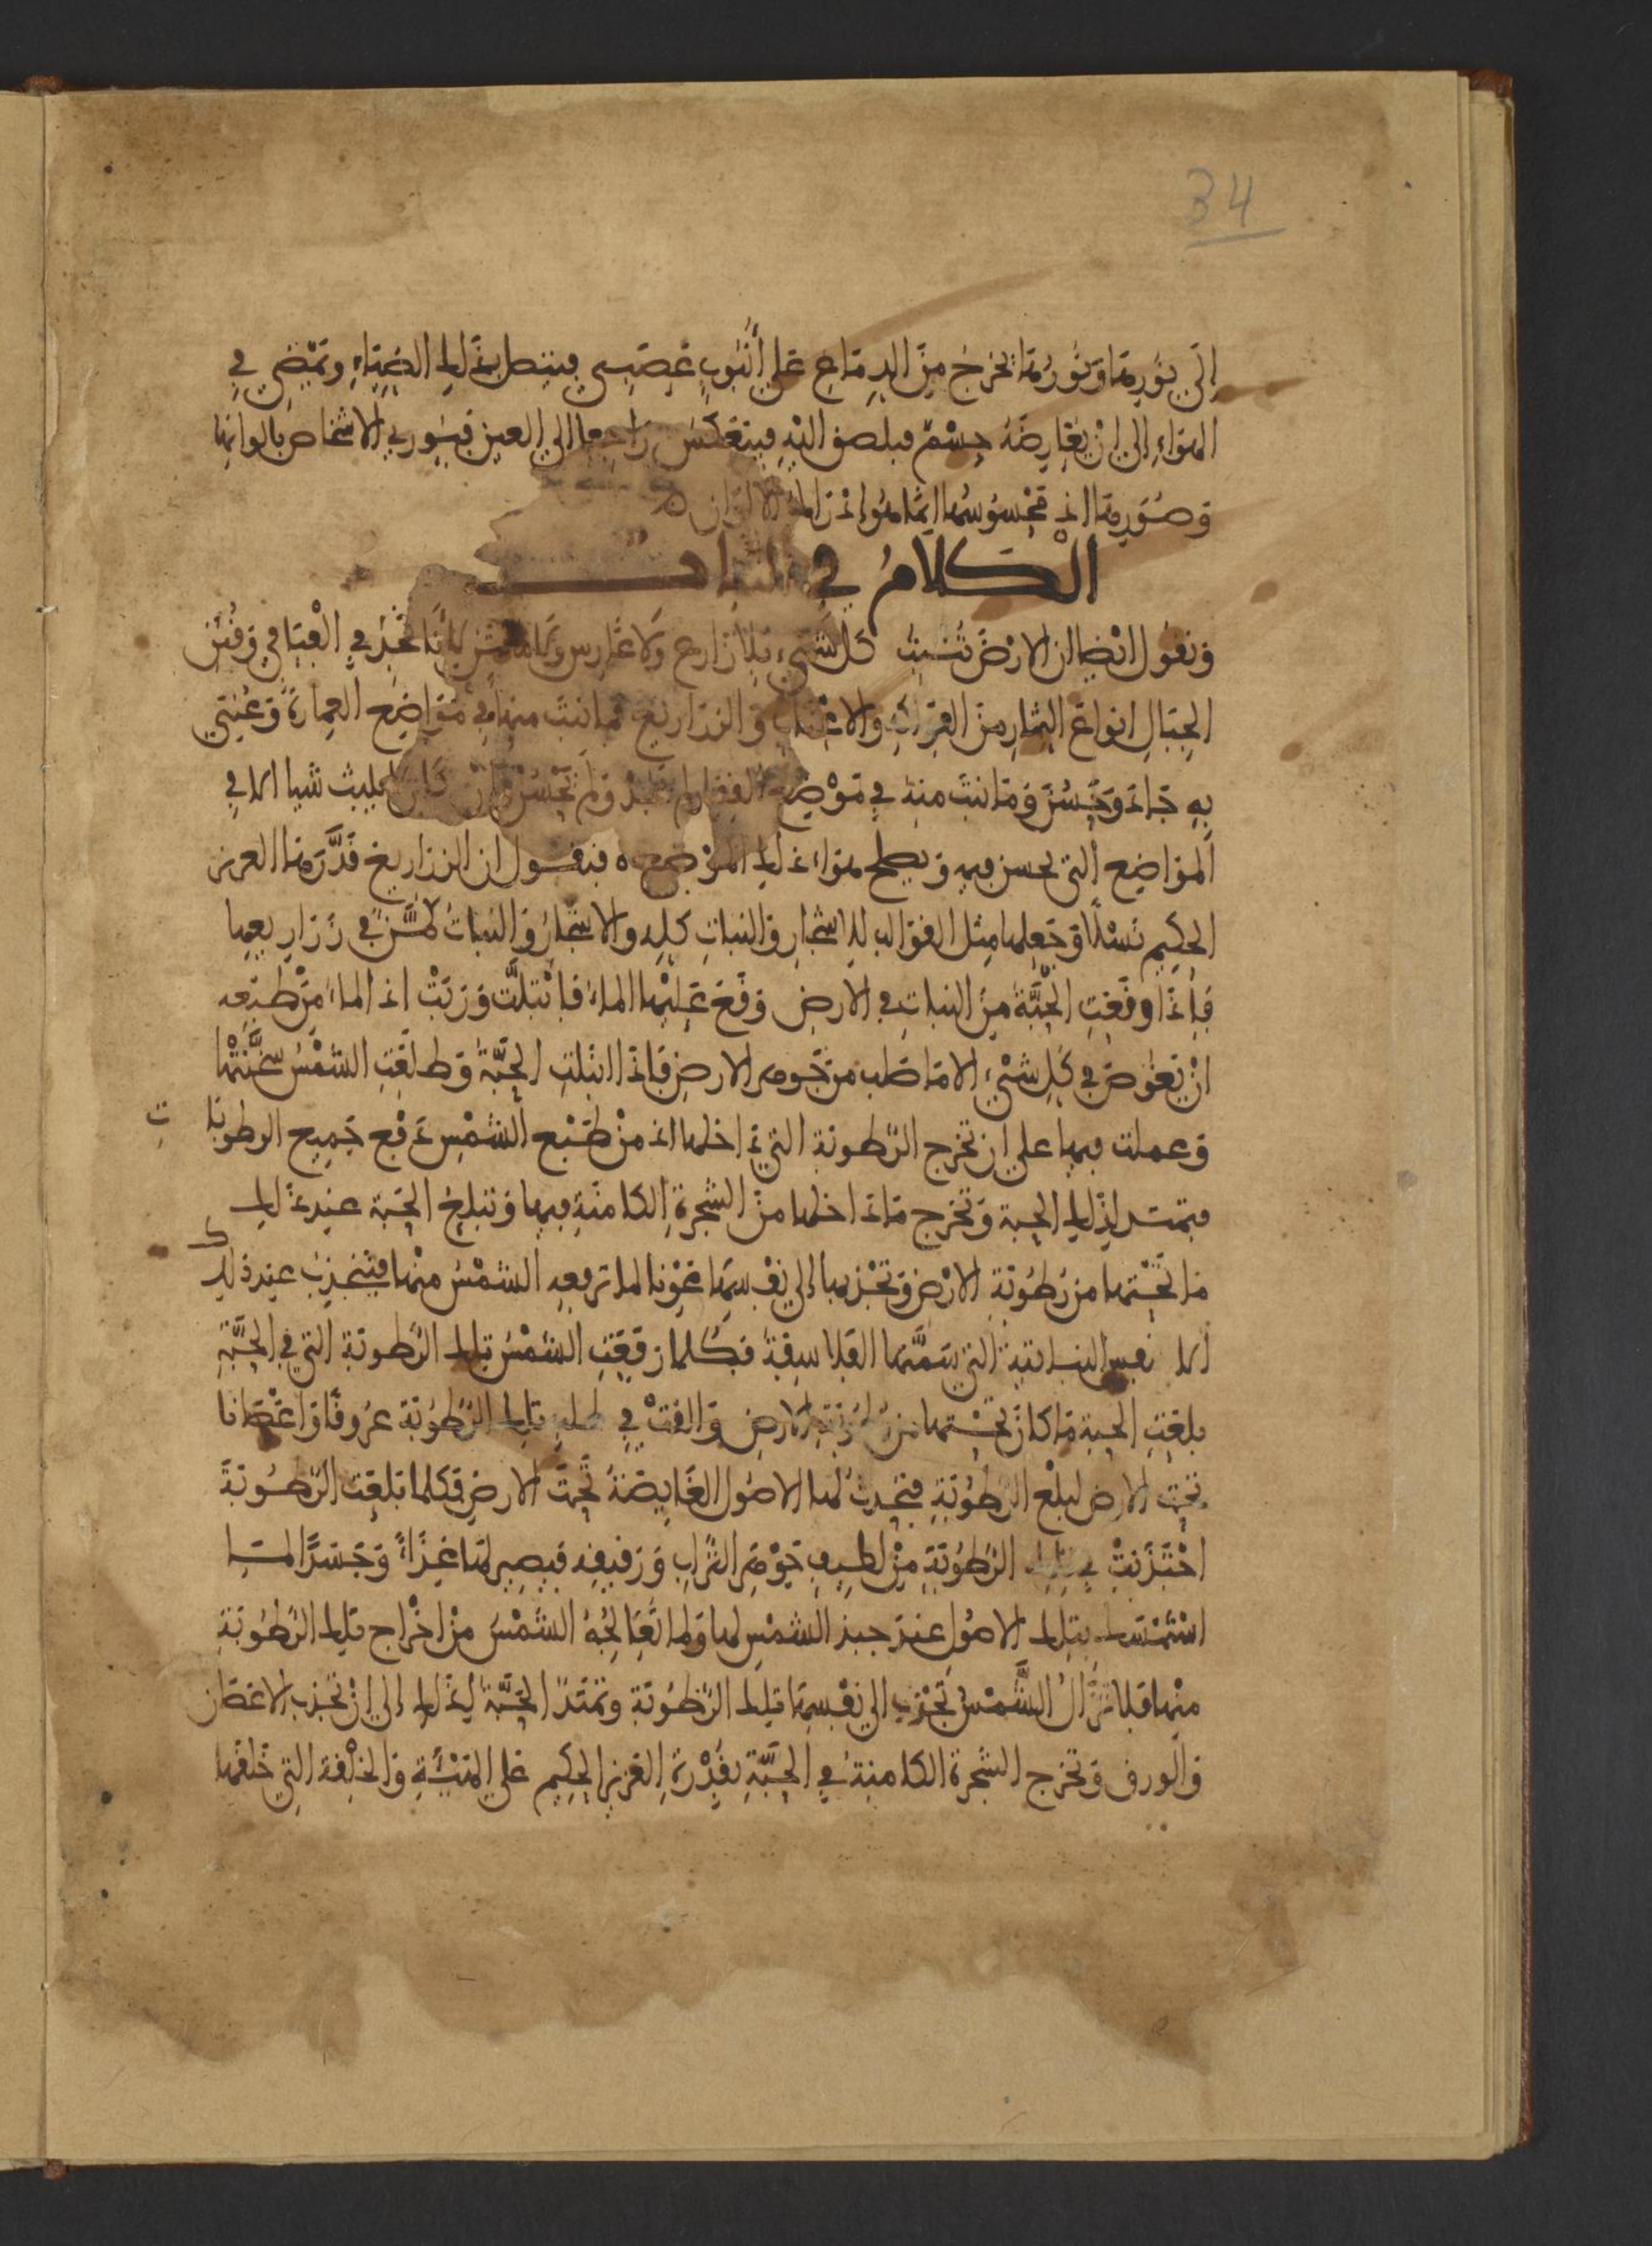 34
إلى نورها ونورها يخرج من الدماغ على أنبوب عصبي فيتصل بذلك الضياء وتمضي في
الهواء إلى ان يعارضه جسم فيلصق اليه فينعكس راجعا الى العين فيوري الاشخاص بالوانها
وصورها اذ محسوسها انما هواء ذالك الالوان
الكلام في النبات
ونقول ايضا ان الارض تنبت كل شيء بلا زارع ولا غارس لأنا نجد في الفيافي وقنن
الجبال انواع الثمار من الفواكه والاعناب والزراريع فما نبت منها في مواضع العمارة وعني
به جاد وحسن وما نبت منه في موضع القفار لم يجد ولم يحسن شيا الا في
المواضع التي يحسن فيه ويصلح هواء ذلك الموضع فنقول ان الزراريع قدرها العزيز
الحكيم نسلا وجعلها مثل القوالب للاشجار والنبات كله والاشجار والنبات في زراريعها
فإذا وقعت الحبة من النبات في الارض وقع عليها الماء فابتلت وربت اذ الماء من طبعه
ان يغوص في كل شيء الا ما صلب من جوهر الارض فاذا ابتلت الحبة وطلعت الشمس سخنتها
وعملت فيها على ان تخرج الرطوبة التي داخلها اذ من طبع الشمس دفع جميع الرطوبات
فتمتد لذلك الحبة وتخرج ما داخلها من الشجرة الكامنة فيها وتبلع الحبة عند ذلك
ما تحتها من رطوبة الارض وتجذبها الى نفسها عونا لما ترفعه الشمس منها فينجذب عند ذلك
نفس النباتية التي سمتها الفلاسفة فكلما رفعت الشمس تلك الرطوبة التي في الحبة
بلعت الحبة ما كان تحتها من رطوبة الارض والقت في طلب تلك الرطوبة عروقا واغصانا
تحت الارض لبلع الرطوبة فتحدث لها الاصول الغايصة تحت الارض فكلما بلعت الرطوبة
اجتذبت في تلك الرطوبة من لطيف جوهر التراب ورقيقه فيصير لها غذاء وجسدا لما
استمسك بتلك الاصول عند جبذ الشمس لها ولما تعالجه الشمس من اخراج تلك الرطوبة
منها فلا تزال الشمس تجذب الى نفسها تلك الرطوبة وتمتد الحبة لذلك الى ان تجذب الاغصان
والورق وتخرج الشجرة الكامنة في الحبة بقدرة العزيز الحكيم على الهيئة والخلقة التي خلقها